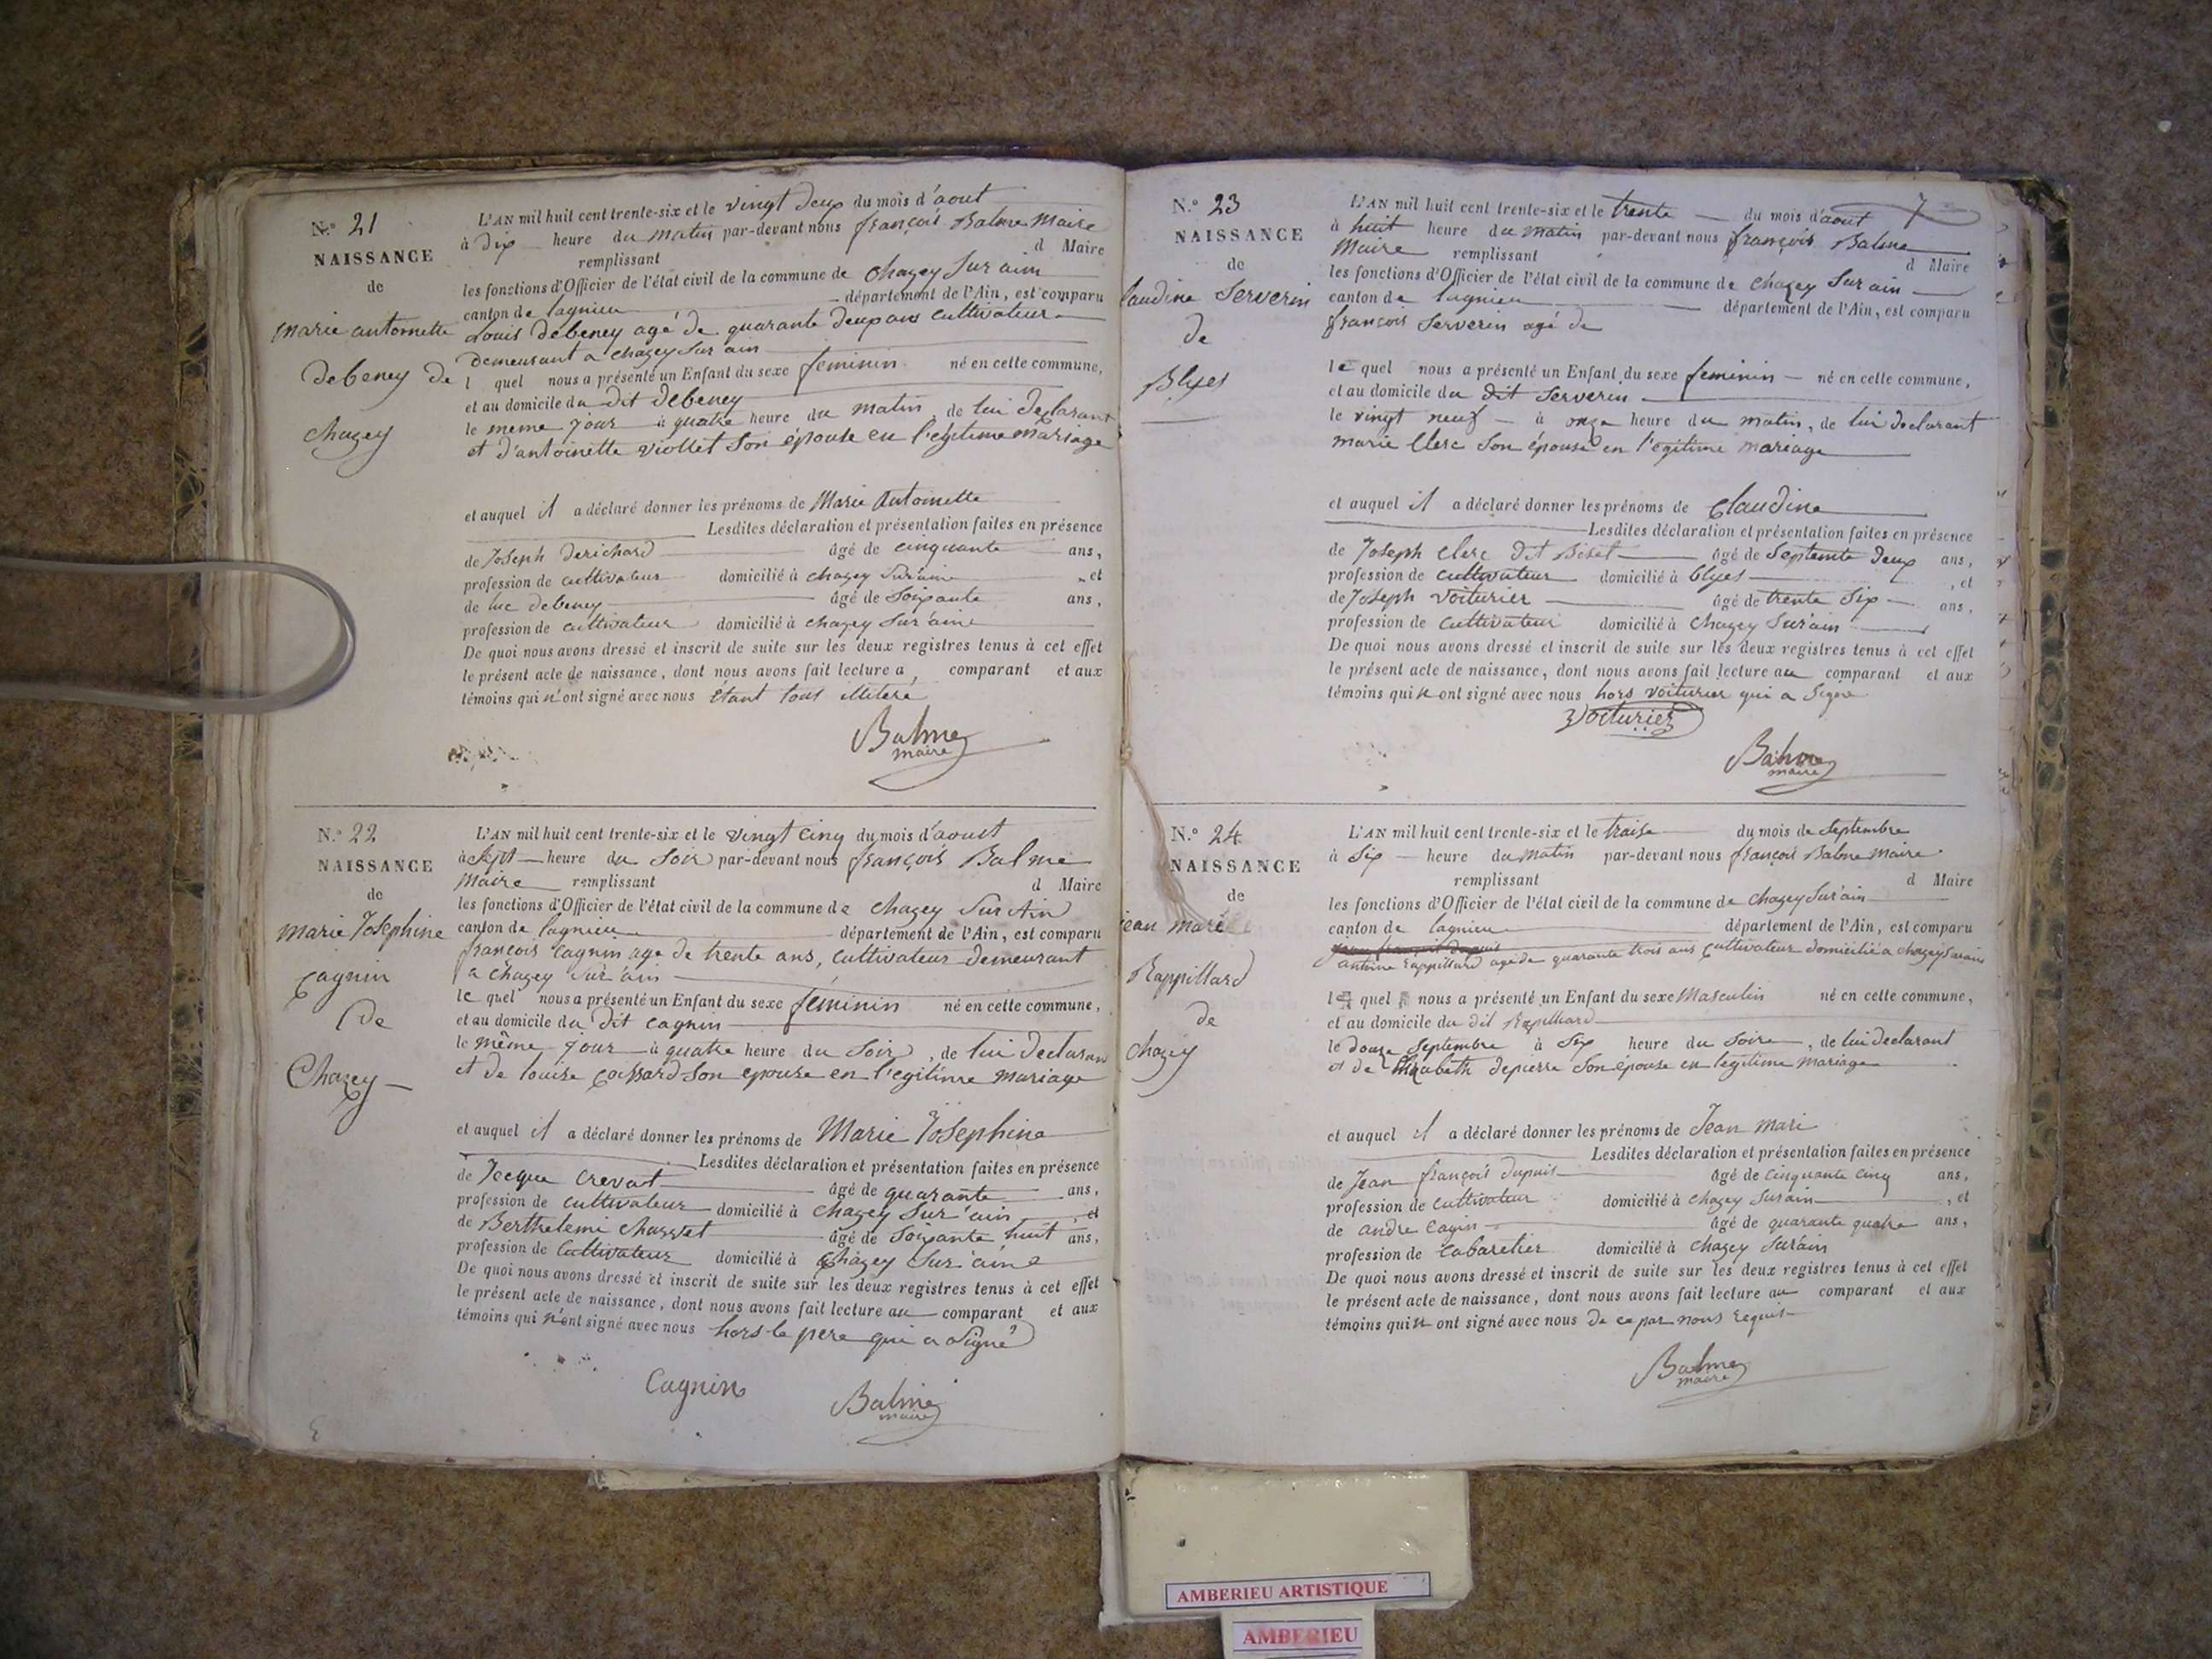 N.° 21
NAISSANCE
de
Marie antoinette
debeney de
chazey
L'AN mil huit cent trente-six et le vingt deux du mois d'aout
à dix heure du matin par-devant nous françois Balme Maire
remplissant d Maire
les fonctions d'Officier de l'état civil de la commune de chazey Sur ain
canton de lagnieu département de l'Ain, est comparu
Louis debeney agé de quarante deux ans cultivateur
demeurant a chazey Sur ain
l quel nous a présenté un Enfant du sexe feminin né en cette commune,
et au domicile du dit debeney
le meme jour à quatre heure du matin, de lui declarant
et d'antoinette viollet Son épouse en l'égitime mariage
et auquel il a déclaré donner les prénoms de Marie Antoinette
Lesdites déclaration et présentation faites en présence
de Joseph derichard âgé de cinquante ans,
profession de cultivateur domicilié à chazey Sur ain et
de luc debeney âgé de Soixante ans,
profession de cultivateur domicilié à chazey Sur aine
De quoi nous avons dressé et inscrit de suite sur les deux registres tenus à cet effet
le présent acte de naissance, dont nous avons fait lecture a, comparant et aux
témoins qui n'ont signé avec nous étant tous illitere
Balme
maire
N.° 22
NAISSANCE
de
Marie Josephine
Cagnin
de
Chazey
L'AN mil huit cent trente-six et le vingt cinq du mois d'aoust
à Sept heure du Soir par-devant nous françois Balme
Maire remplissant d Maire
les fonctions d'Officier de l'état civil de la commune de chazey Sur Ain
canton de lagnieu département de l'Ain, est comparu
françois Cagnin age de trente ans, cultivateur demeurant
a chazey Sur ain
le quel nous a présenté un Enfant du sexe féminin né en cette commune,
et au domicile du dit cagnin
le même jour à quatre heure du Soir, de lui declaran
et de louise Son epouse en l'egitime mariage
et auquel il a déclaré donner les prénoms de Marie Josephine
Lesdites déclaration et présentation faites en présence
de Jecque Crevat âgé de quarante ans,
profession de cultivateur domicilié à chazey Sur'ain, et
de Berthelemi âgé de Soixante huit ans,
profession de Cultivateur domicilié à Chazey Sur'aine
De quoi nous avons dressé et inscrit de suite sur les deux registres tenus à cet effet
le présent acte de naissance, dont nous avons fait lecture au comparant et aux
témoins qui n'ont signé avec nous hors le pere qui a Signé
Cagnin
Balme
maire
7
N.° 23
NAISSANCE
de
laudine Serverin
de
Blyes
L'AN mil huit cent trente-six et le trente du mois d'aout
à huit heure du matin par-devant nous françois Balme
Maire remplissant d Maire
les fonctions d'Officier de l'état civil de la commune de chazey Sur ain
canton de lagnieu département de l'Ain, est comparu
françois Serverin agé de
le quel nous a présenté un Enfant du sexe feminin né en cette commune,
et au domicile du dit Serverin
le vingt neuf à onze heure du matin, de lui declarant
marie Clerc Son épouse en l'égitime mariage
et auquel il a déclaré donner les prénoms de Claudine
Lesdites déclaration et présentation faites en présence
de Joseph Clerc dit âgé de Septente deux ans,
profession de cultivateur domicilié à blyes, et
de Joseph Voiturier âgé de trente Six ans,
profession de cultivateur domicilié à Chazey Sur'ain
De quoi nous avons dressé et inscrit de suite sur les deux registres tenus à cet effet
le présent acte de naissance, dont nous avons fait lecture au comparant et aux
témoins qui n ont signé avec nous hors voiturier qui a Signé
Voiturier
Balme
maire
N.° 24
NAISSANCE
de
jean mari
Rappillard
de
chazey
L'AN mil huit cent trente-six et le traise du mois de Septembre
à Six heure du matin par-devant nous françois Balme Maire
remplissant d Maire
les fonctions d'Officier de l'état civil de la commune de chazey Sur'ain
canton de lagnieu département de l'Ain, est comparu
antoine Rappillard agé de quarante trois ans Cultivateur domicilié a chazey Surain
le quel nous a présenté un Enfant du sexe Masculin né en cette commune,
et au domicile du dit Rapilliard
le douze Septembre à Six heure du Soire, de lui declarant
et de Elizabeth depierre Son épouse en legitime mariage
et auquel il a déclaré donner les prénoms de Jean mari
Lesdites déclaration et présentation faites en présence
de Jean françois dupuis âgé de Cinquante cinq ans,
profession de cultivateur domicilié à chazey Surain, et
de andre âgé de quarante quatre ans,
profession de Cabaretier domicilié à chazey Surain
De quoi nous avons dressé et inscrit de suite sur les deux registres tenus à cet effet
le présent acte de naissance, dont nous avons fait lecture au comparant et aux
témoins qui n ont signé avec nous de ce par nous requit
Balme
maire
AMBERIEU ARTISTIQUE
AMBERIEU